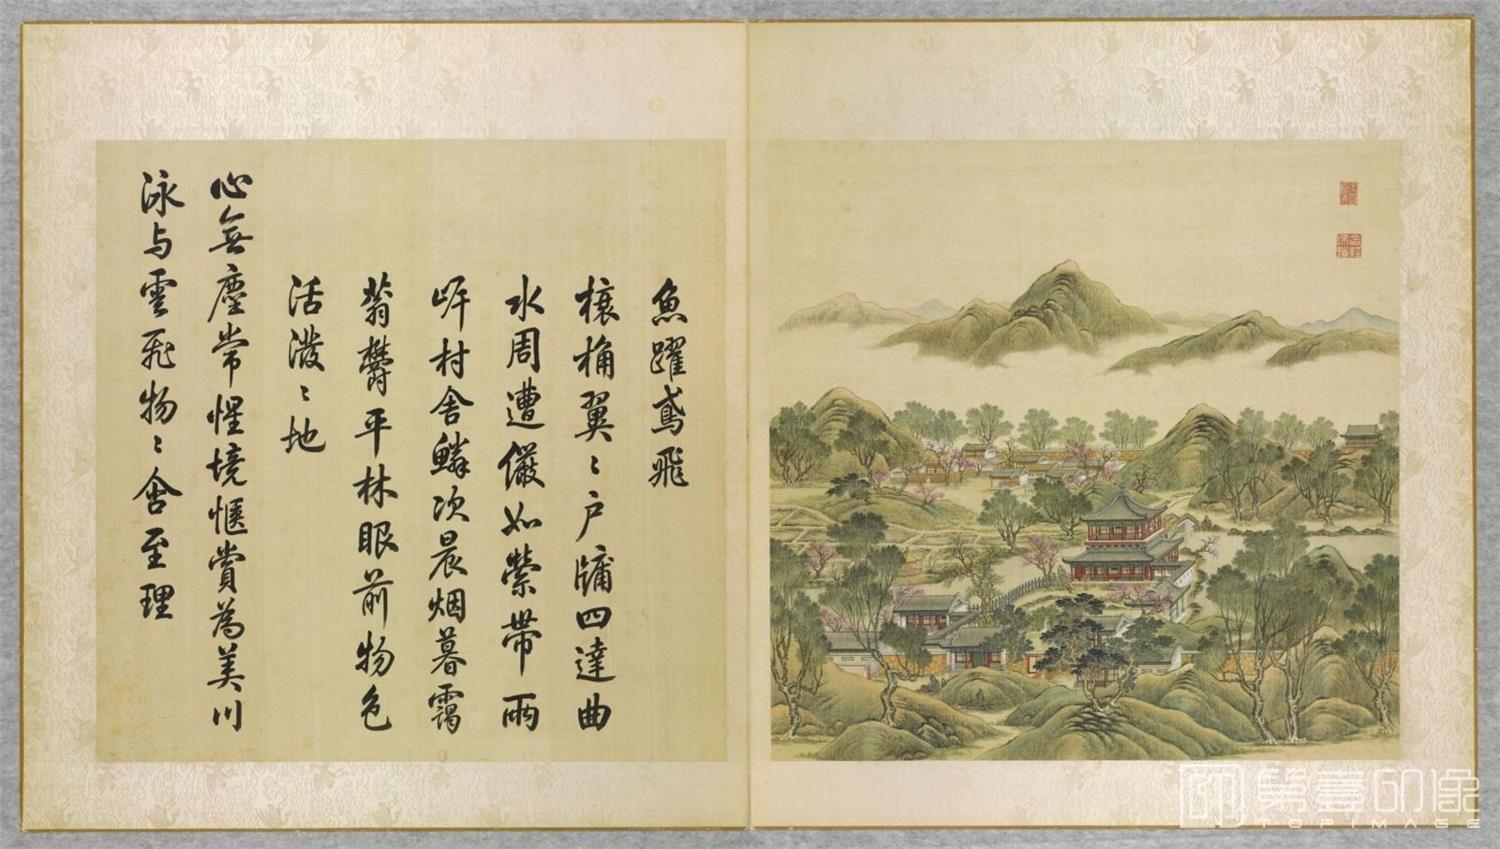 魚躍鳶飛
榱桷翼〻户牖四達曲
水周遭儼如縈帶兩
岸村舍鱗次晨烟暮靄
蓊鬱平林眼前物色
活潑〻地
心無塵常惺境愜賞為美川
泳与雲飛物〻含至理
TOPIMAGE